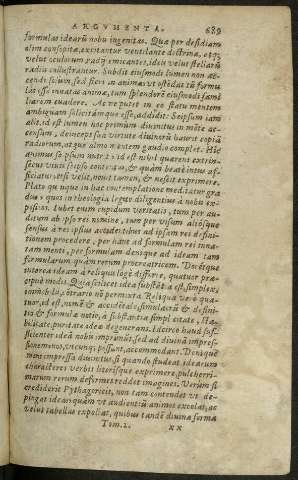 ARGVMENTA. 689
formulas idearū nobis ingenitas. Quæ per desidiam
olim consopitæ, excitantur ventilante doctrina, atq;
velut oculorum radij emicantes, ideis velut stellarū
radiis collustrantur. Subdit eiusmodi lumen non ac-
cendi solum, sed &
las esse innatas animæ, tum splendorē eiusmodi fami
liarem euadere. Ac ne putet in eo statu mentem
ambiguam solicitámque esse, addidit: Seipsum iam
alit, id est lumen hoc primum diuinitus in mēte ac-
censum, deinceps sua virtute diuinorū haurit copiā
radiorum, atque almo mentem gaudio complet. Hic
animus
secus viuit seipso & quàm beatè intus af-
ficiatur, etsi velit, non tamen, & nescit exprimere.
Plato quoque in hac contemplatione meditatur gra
dus quos in theologia legúsque diligentius à nobis ex-
positi. Iubet enim cupidum veritatis, tum per au-
ditum ab ipso rei nomine, tum per visum aliósque
sensus à rei ipsius ad ipsam rei defini-
tionem procedere, per hanc ad formulam rei inna-
tam menti, per formulam denique ad ideam tam
formularum quàm rerum procreatricem. Docétque
interea ideam à reliquis longè differre, quatuor præ-
cipuè modis. Quia scilicet idea substātia est, simplex,
immobilis, cōtrario nō permixta. Reliqua verò qua-
tuor, id est, nomē & accidētale, simulacrū & defini-
tio & formulæ ratio, à substantia simplicitate, sta-
bilitate, puritate ideæ degenerant. Idcirco haud suf-
ficienter idea nobis imprimūt, sed ad diuinā impres-
sionem nos, vtcunq; possunt, accommodant. Denique
mens impressa diuinitus, si quando studeat idearum
characteres verbis literísque exprimere, pulcherri-
marum rerum deformes reddet imagines. Verùm si
crediderit Pythagoricis, non tam contendet vt de-
pingat ideas, quàm vt audientiū animos excolat, ac
velut tabellas expoliat, quibus tandē diuina forma
Tom. 2. XX